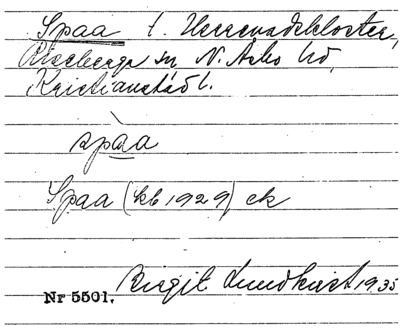 Spaa t. Herrevadskloster,
Riseberga sn N. Åsbo hd,
Kristianstads l.
spàa
Spaa (kb 1929) ek
Nr 5501. Birgit Lundkvist 1935